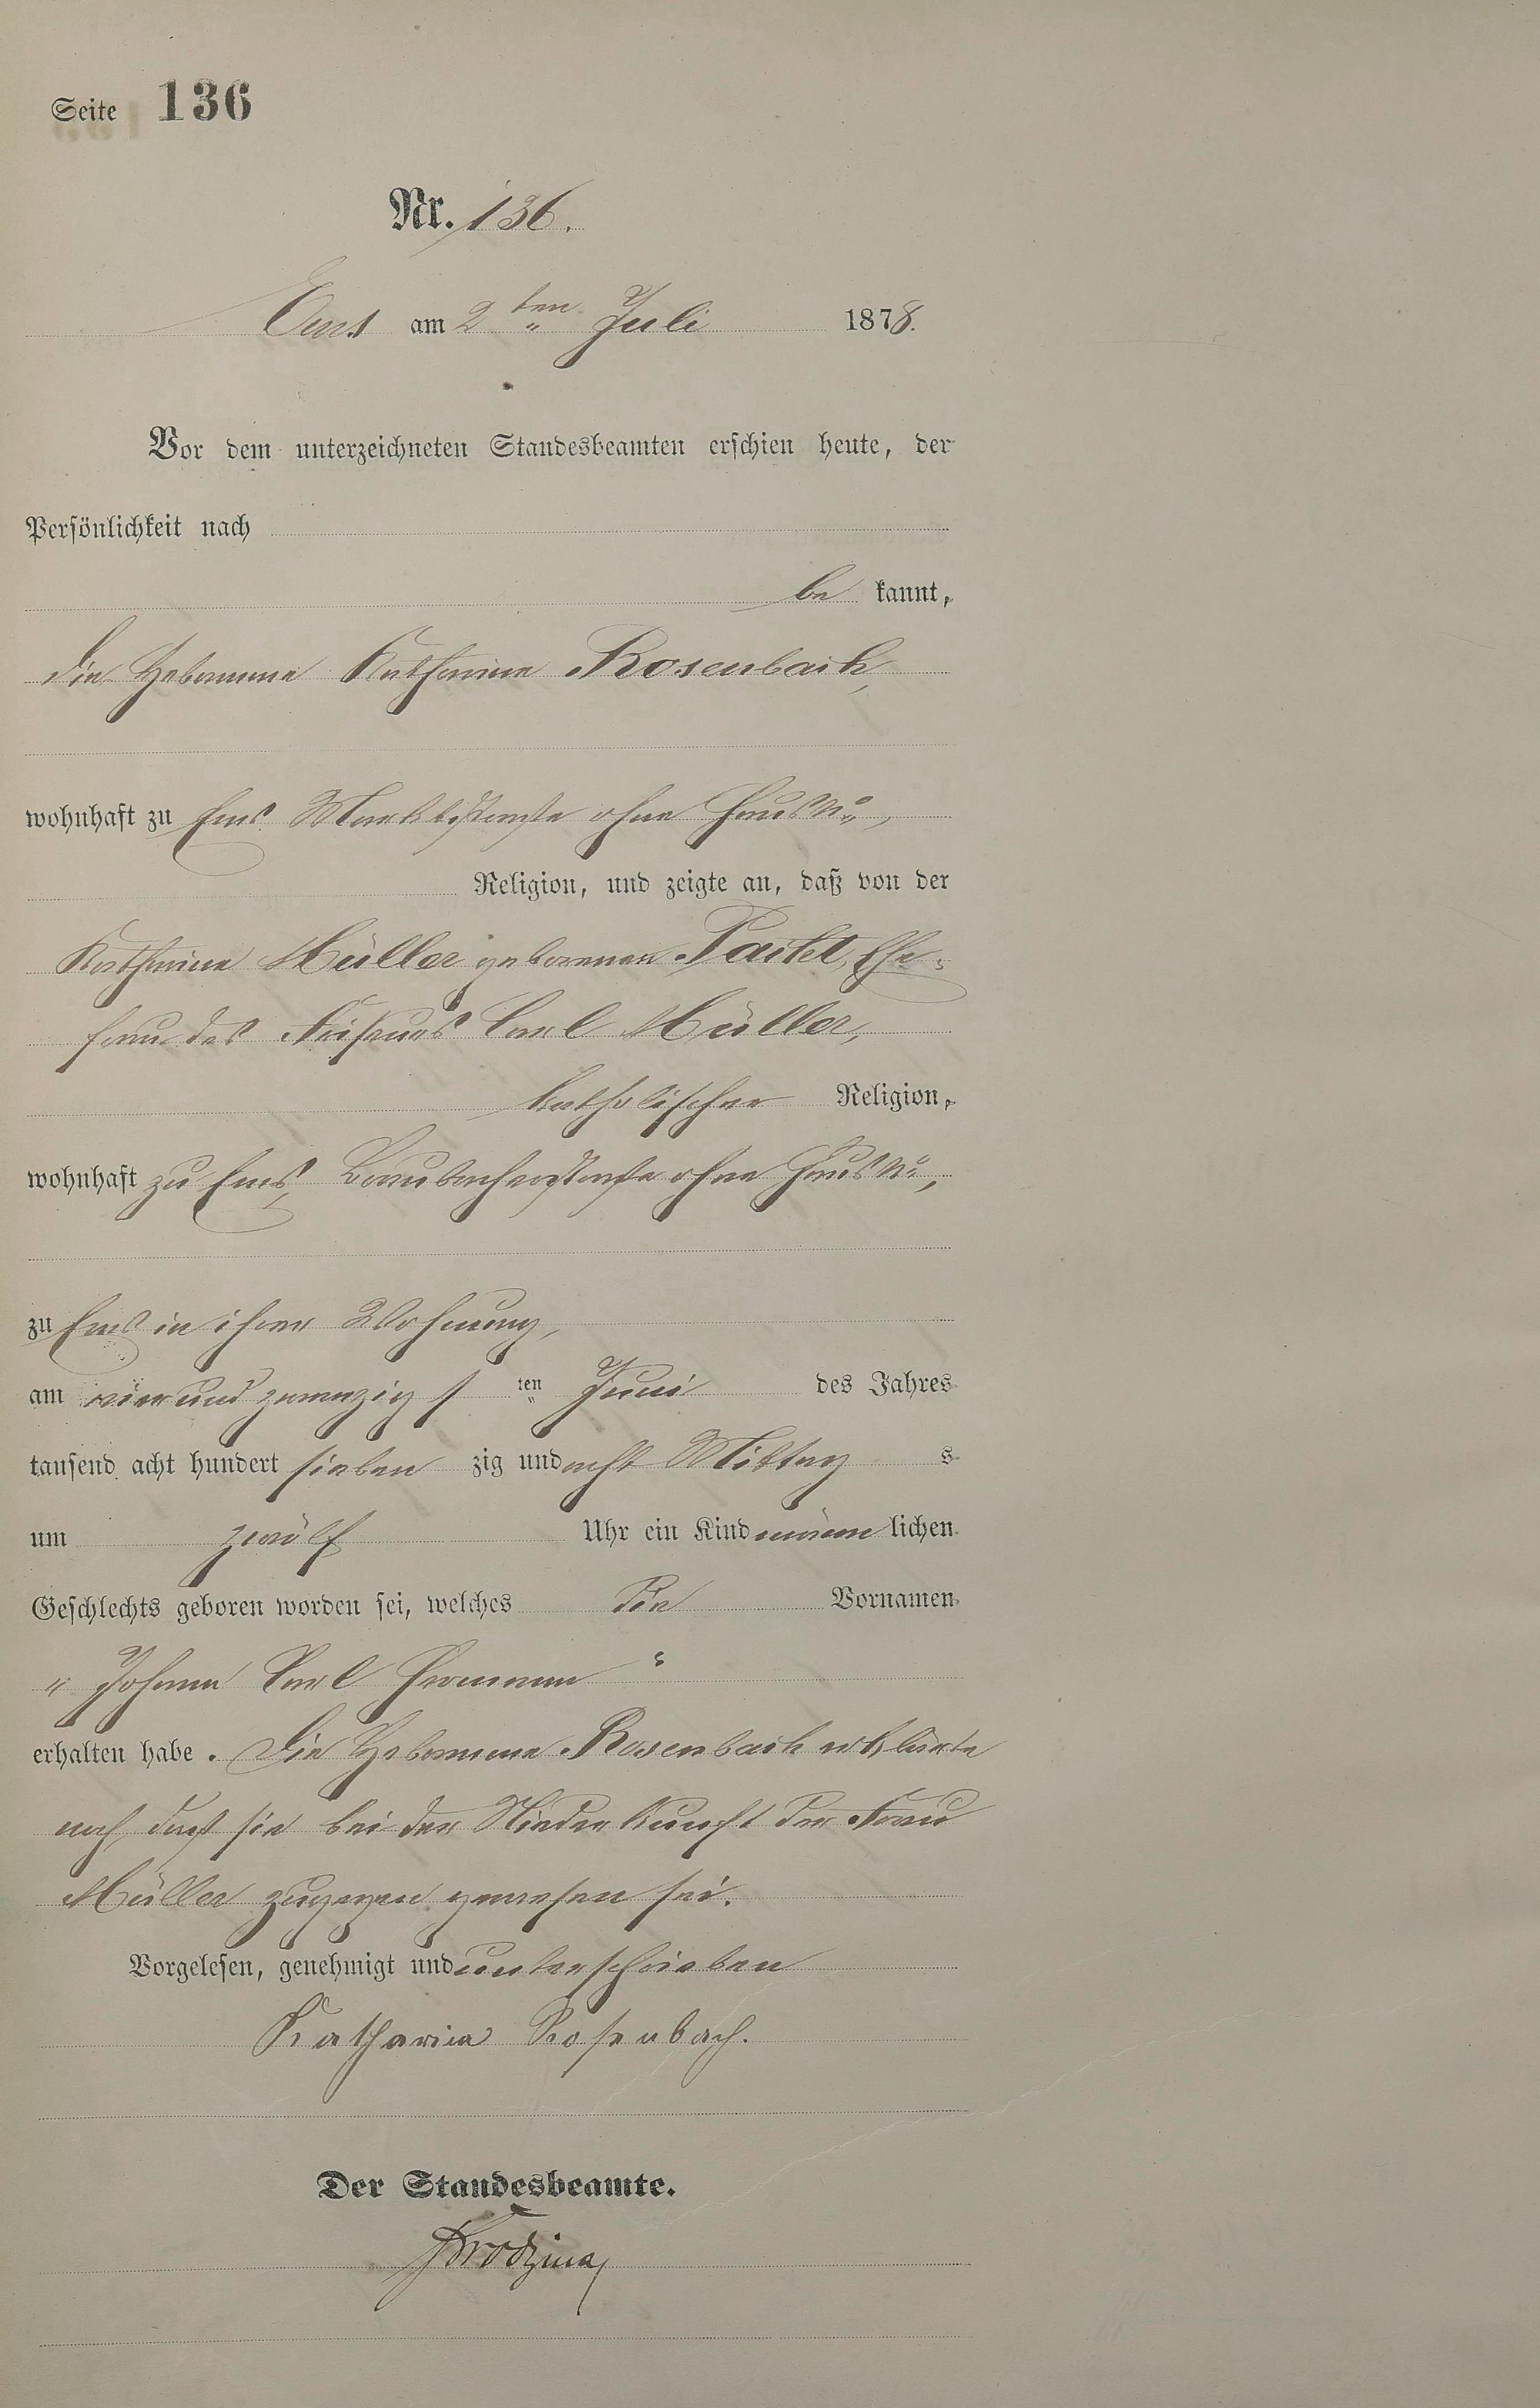 Seite 136
Nr. 136.
Ems am 2ten Juli 1878.
Vor dem unterzeichneten Standesbeamten erschien heute, der
Persönlichkeit nach
be kannt,
die Hebamme Katharina Rosenbach,
wohnhaft zu Ems Marktstraße ohne Haus No,
Religion, und zeigte an, daß von der
Katharina Müller geborenen Ehe-
frau des Carl Müller,
katholischer Religion,
wohnhaft zu Ems, Braubacherstraße ohne Haus No,
zu Ems in ihrer Wohnung,
am vier und zwanzigsten ten Juni des Jahres
tausend acht hundert sieben zig und acht Mittag s
um zwölf Uhr ein Kind männ lichen
Geschlechts geboren worden sei, welches die Vornamen
"Johann Carl Hermann"
erhalten habe. Die Hebamme Rosenbach erklärte
noch, daß sie bei der Niederkunft der Frau
Müller zugegen gewesen sei.
Vorgelesen, genehmigt und unterschrieben
Katharina Rosenbach.
Der Standesbeamte.